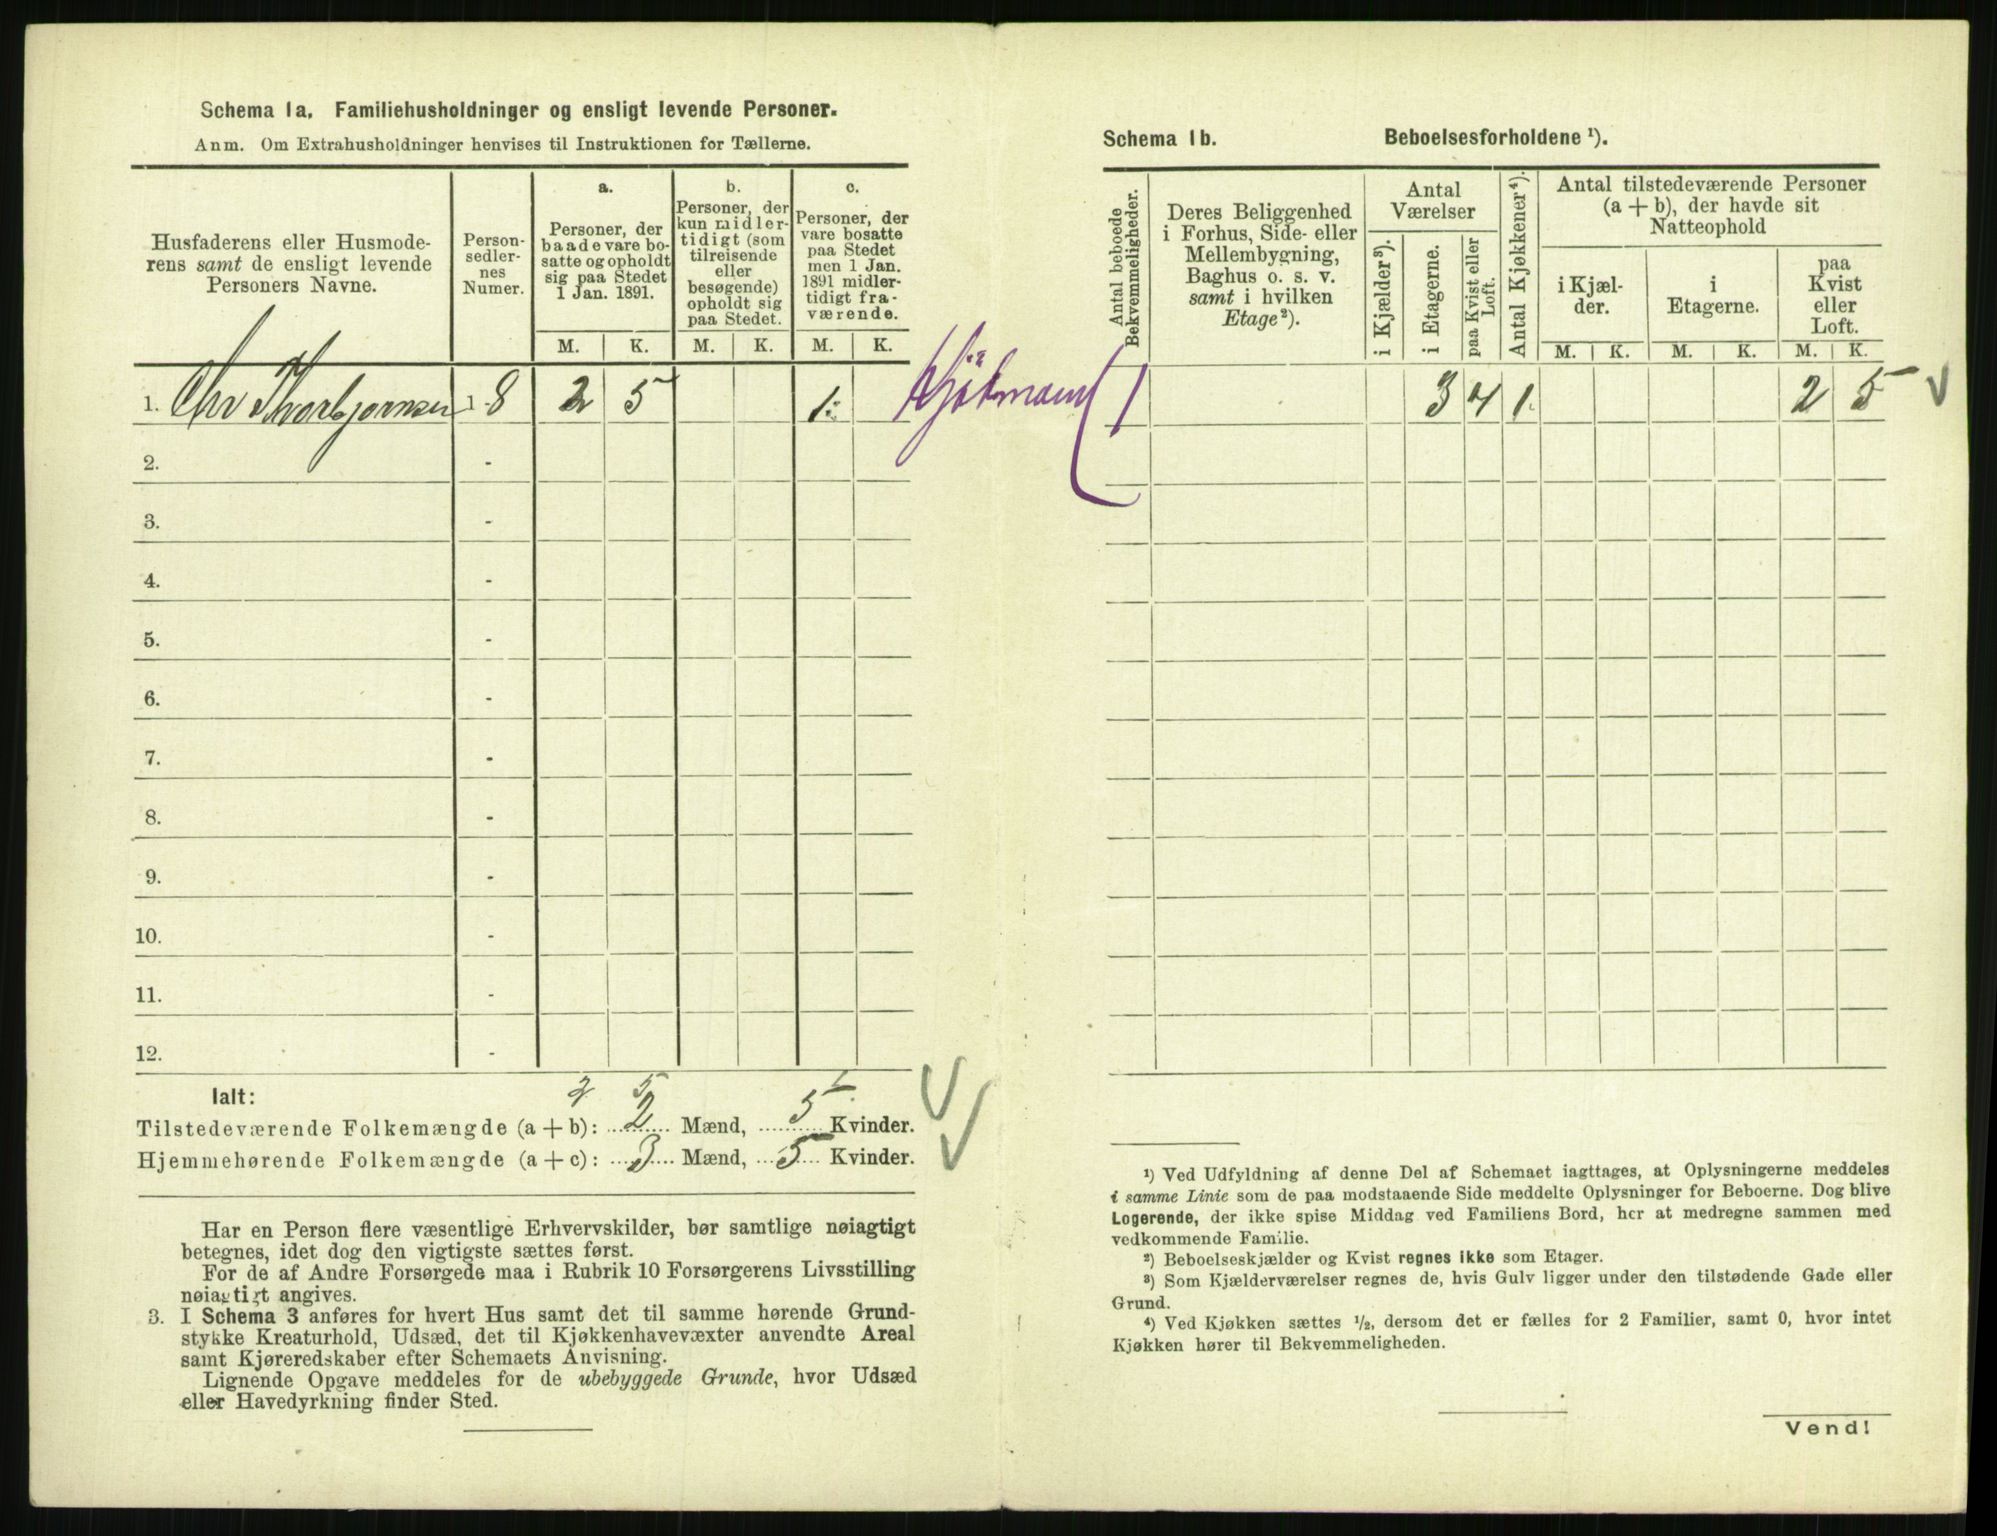 Schema 1a. Familiehusholdninger og ensligt levende Personer.
Anm. Om Extrahusholdninger henvises til Instruktionen for Tællerne.
Husfaderens eller Husmode-
rens samt de ensligt levende
Personers Navne.
Person-
sedler-
nes
Numer.
a.
Personer, der
baade vare bo-
satte og opholdt
sig paa Stedet
1 Jan. 1891.
b.
Personer, der
kun midler-
tidigt (som
tilreisende
eller
besøgende)
opholdt sig
paa Stedet.
c.
Personer, der
vare bosatte
paa Stedet
men 1 Jan.
1891 midler-
tidigt fra-
værende.
M. K. M. K. M. K.
1. Chr Thorbjørnsen 1-8 2 5 1.
2. -
3. -
4. -
5. -
6. -
7. -
8. -
9. -
10. -
11. -
12. -
Ialt:
2 5
Tilstedeværende Folkemængde (a + b): 2 Mænd, 5 Kvinder.
Hjemmehørende Folkemængde (a + c): 3 Mænd, 5 Kvinder.
Har en Person flere væsentlige Erhvervskilder, bør samtlige nøiagtigt
betegnes, idet dog den vigtigste sættes først.
For de af Andre Forsørgede maa i Rubrik 10 Forsørgerens Livsstilling
nøiagtigt angives.
3. I Schema 3 anføres for hvert Hus samt det til samme hørende Grund-
stykke Kreaturhold, Udsæd, det til Kjøkkenhavevæxter anvendte Areal
samt Kjøreredskaber efter Schemaets Anvisning.
Lignende Opgave meddeles for de ubebyggede Grunde, hvor Udsæd
eller Havedyrkning finder Sted.
Schema 1b. Beboelsesforholdene ¹).
Antal beboede
Bekvemmeligheder.
Deres Beliggenhed
i Forhus, Side- eller
Mellembygning,
Baghus o. s. v.
samt i hvilken
Etage²).
Antal
Værelser
i Kjælder³).
i Etagerne.
paa Kvist eller
Loft.
Antal Kjøkkener⁴).
Antal tilstedeværende Personer
(a + b), der havde sit
Natteophold
i Kjæl-
der.
i
Etagerne.
paa
Kvist
eller
Loft.
M. K. M. K. M. K.
1 3 4 1. 2 5
¹) Ved Udfyldning af denne Del af Schemaet iagttages, at Oplysningerne meddeles
i samme Linie som de paa modstaaende Side meddelte Oplysninger for Beboerne. Dog blive
Logerende, der ikke spise Middag ved Familiens Bord, her at medregne sammen med
vedkommende Familie.
²) Beboelseskjælder og Kvist regnes ikke som Etager.
³) Som Kjælderværelser regnes de, hvis Gulv ligger under den tilstødende Gade eller
Grund.
⁴) Ved Kjøkken sættes ½, dersom det er fælles for 2 Familier, samt 0, hvor intet
Kjøkken hører til Bekvemmeligheden.
Vend!